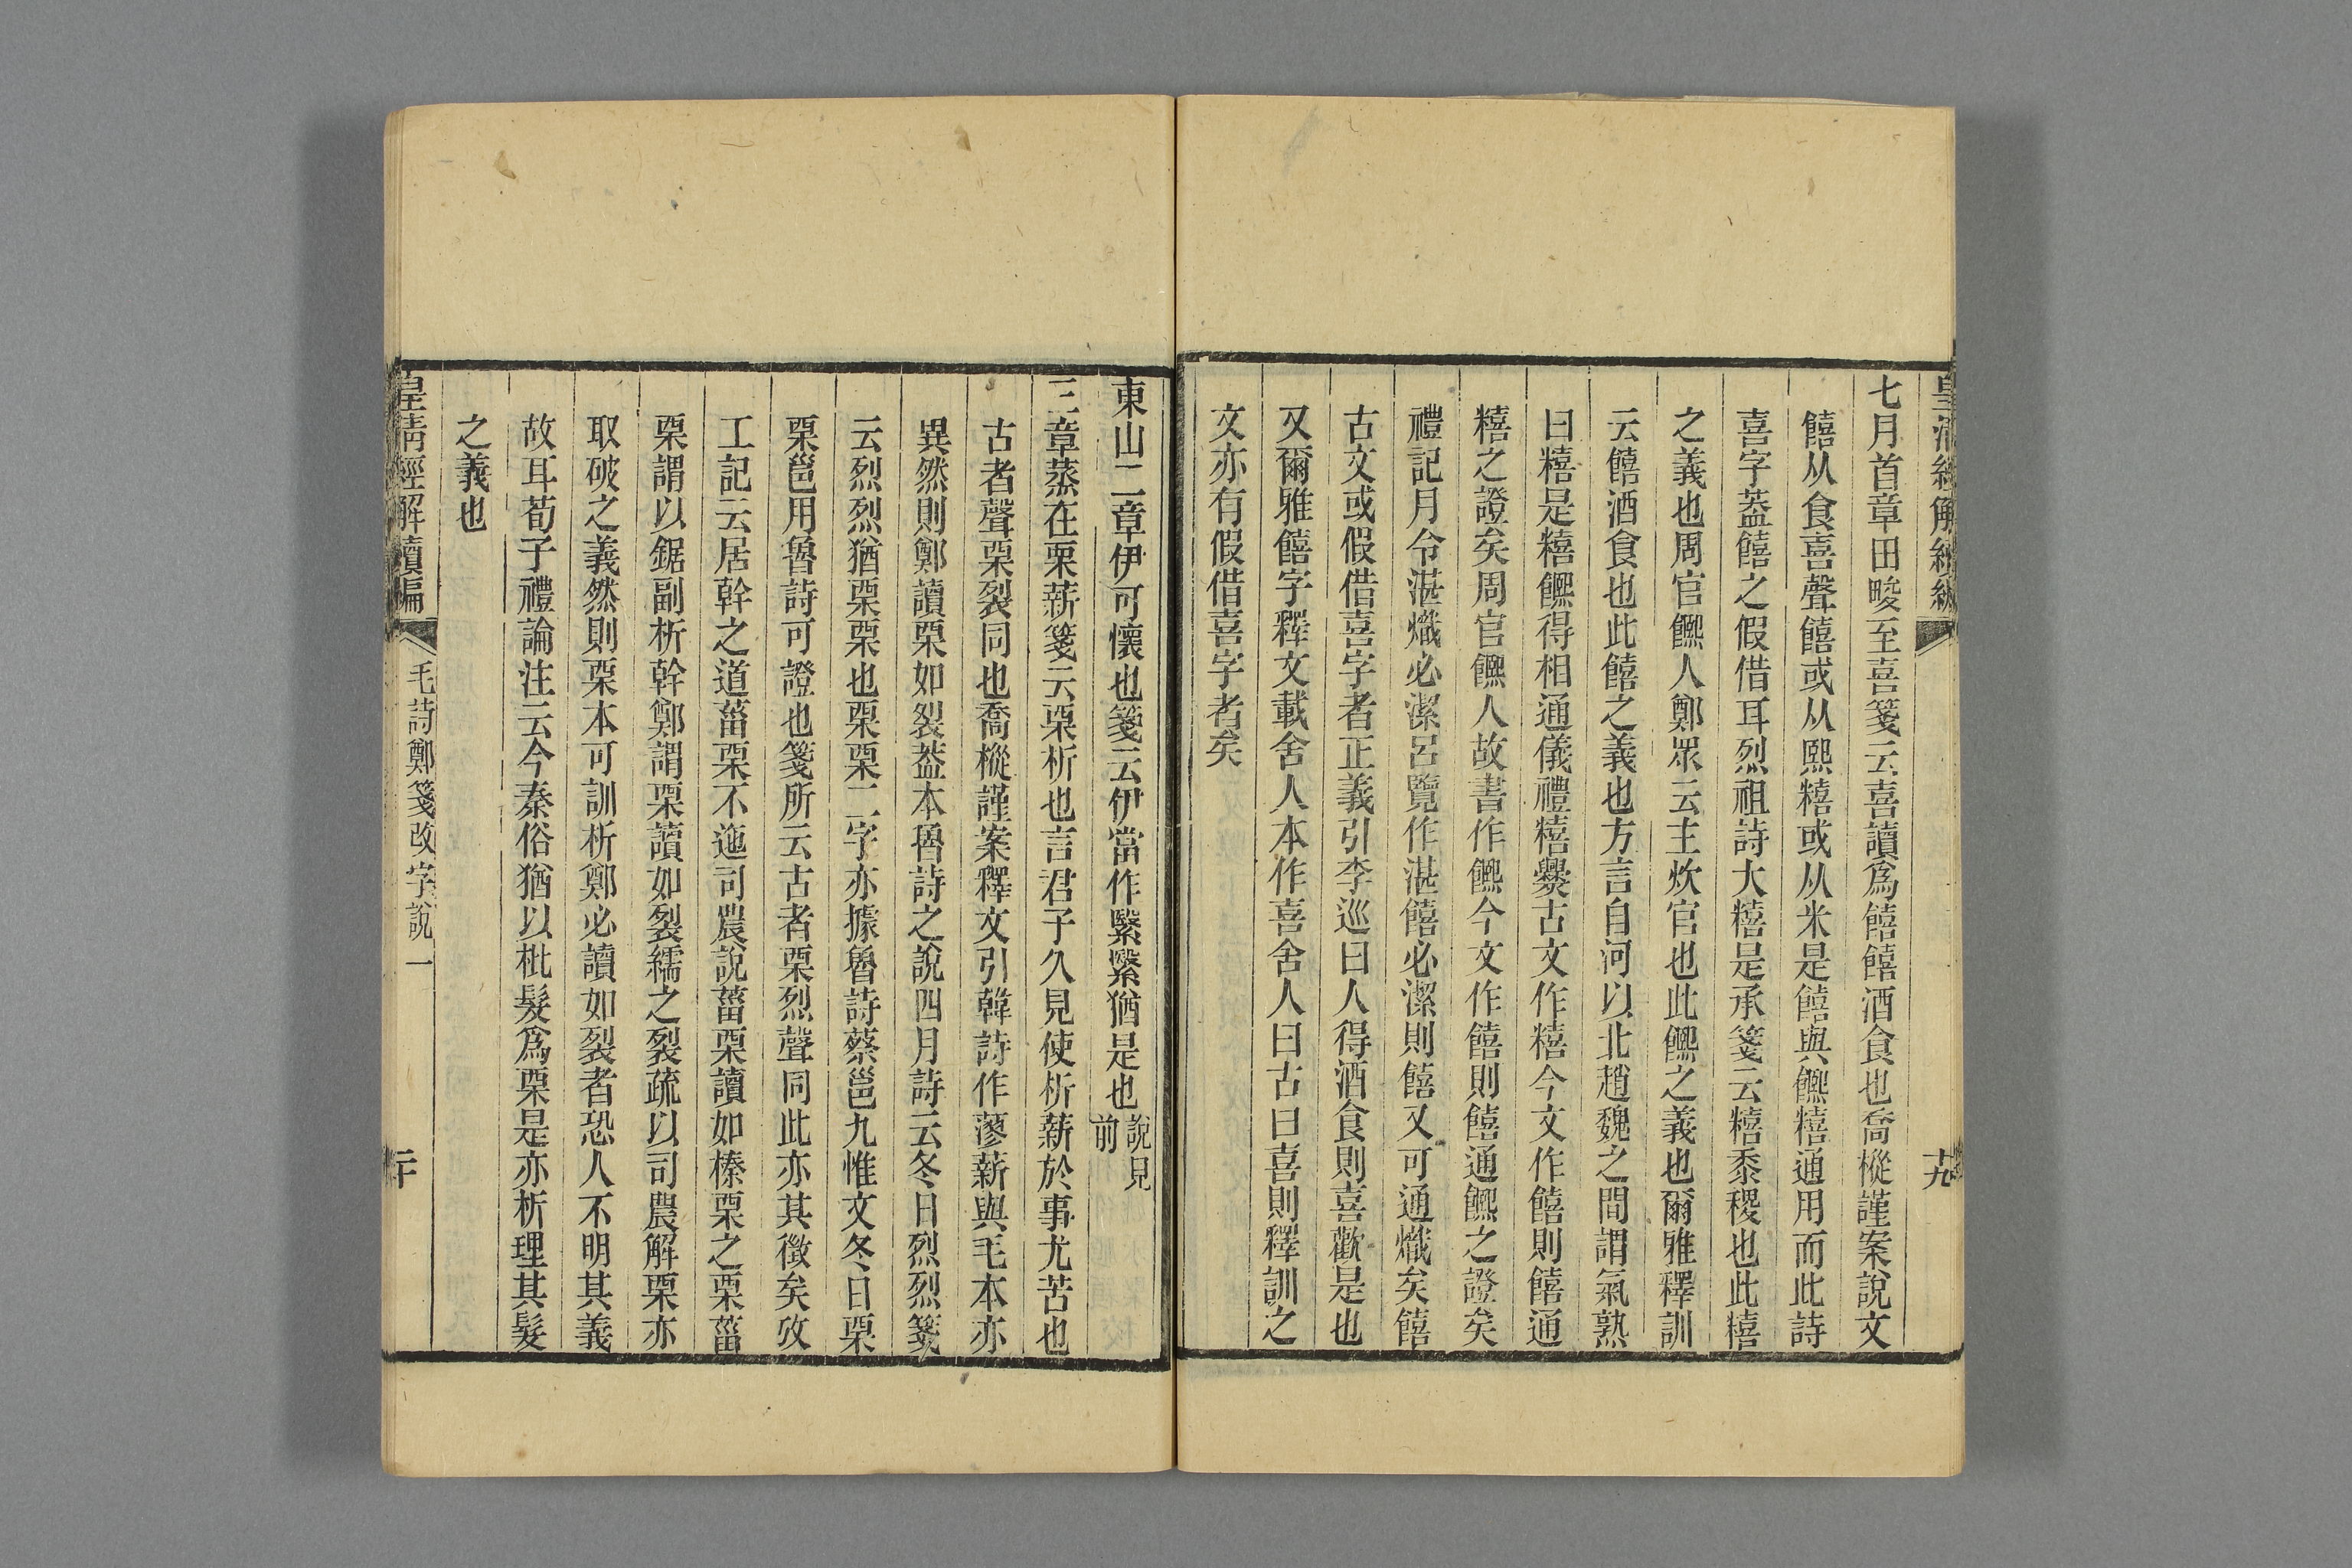 皇清經解續編
十九
七月首章田畯至喜箋云喜讀爲饎饎酒食也喬樅謹案說文
饎从食喜聲饎或从熙糦或从米是饎與䊠糦通用而此詩
喜字葢饎之假借耳烈祖詩大糦是承箋云糦黍稷也此糦
之義也周官饎人鄭眾云主炊官也此饎之義也爾雅釋訓
云饎酒食也此饎之義也方言自河以北趙魏之間謂氣熟
曰糦是糦饎得相通儀禮糦爨古文作糦今文作饎則饎通
糦之證矣周官饎人故書作饎今文作饎則饎通饎之證矣
禮記月令湛熾必潔呂覽作湛饎必潔則饎又可通熾矣饎
古文或假借喜字者正義引李巡曰人得酒食則喜歡是也
又爾雅饎字釋文載舍人本作喜舍人曰古曰喜則釋訓之
文亦有假借喜字者矣
東山二章伊可懷也箋云伊當作繄繄猶是也說見
前
三章蒸在栗薪箋云栗析也言君子久見使析薪於事尤苦也
古者聲栗裂同也喬樅謹案釋文引韓詩作蓼薪與毛本亦
異然則鄭讀栗如裂葢本魯詩之說四月詩云冬日烈烈箋
云烈烈猶栗栗也栗栗二字亦據魯詩蔡邕九惟文冬日栗
栗邕用魯詩可證也箋所云古者栗烈聲同此亦其徵矣攷
工記云居幹之道菑栗不迤司農說菑栗讀如榛栗之栗菑
栗謂以鋸副析幹鄭謂栗讀如裂繻之裂疏以司農解栗亦
取破之義然則栗本可訓析鄭必讀如裂者恐人不明其義
故耳荀子禮論注云今秦俗猶以枇髮爲栗是亦析理其髮
之義也
皇清經解續編
毛詩鄭箋改字說一
二十